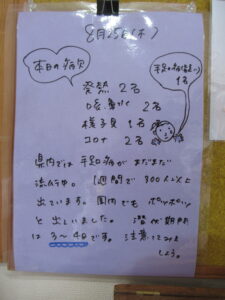 8月25日(木)
本日の病欠
手足口病(疑い)
1名
発熱 2名
咳・鼻汁 2名
様子見 1名
コロナ 2名
県内では 手足口病が まだまだ
流行中。 1週間で 300人以上
出ています。 園内でも ポツポツ
と 出ていました。 潜伏期間
は 3〜4日です。 注意して
しょう。